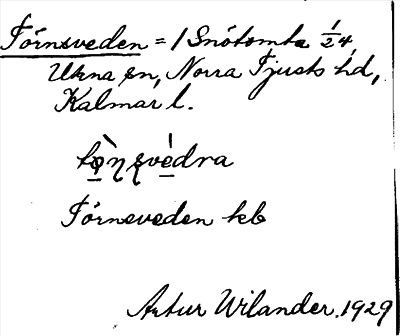 Törnsveden = 1 Snötomta ½4,
Ukna sn, Norra Tjusts hd,
Kalmar l.
Törnsveden kb
Artur Wilander. 1929